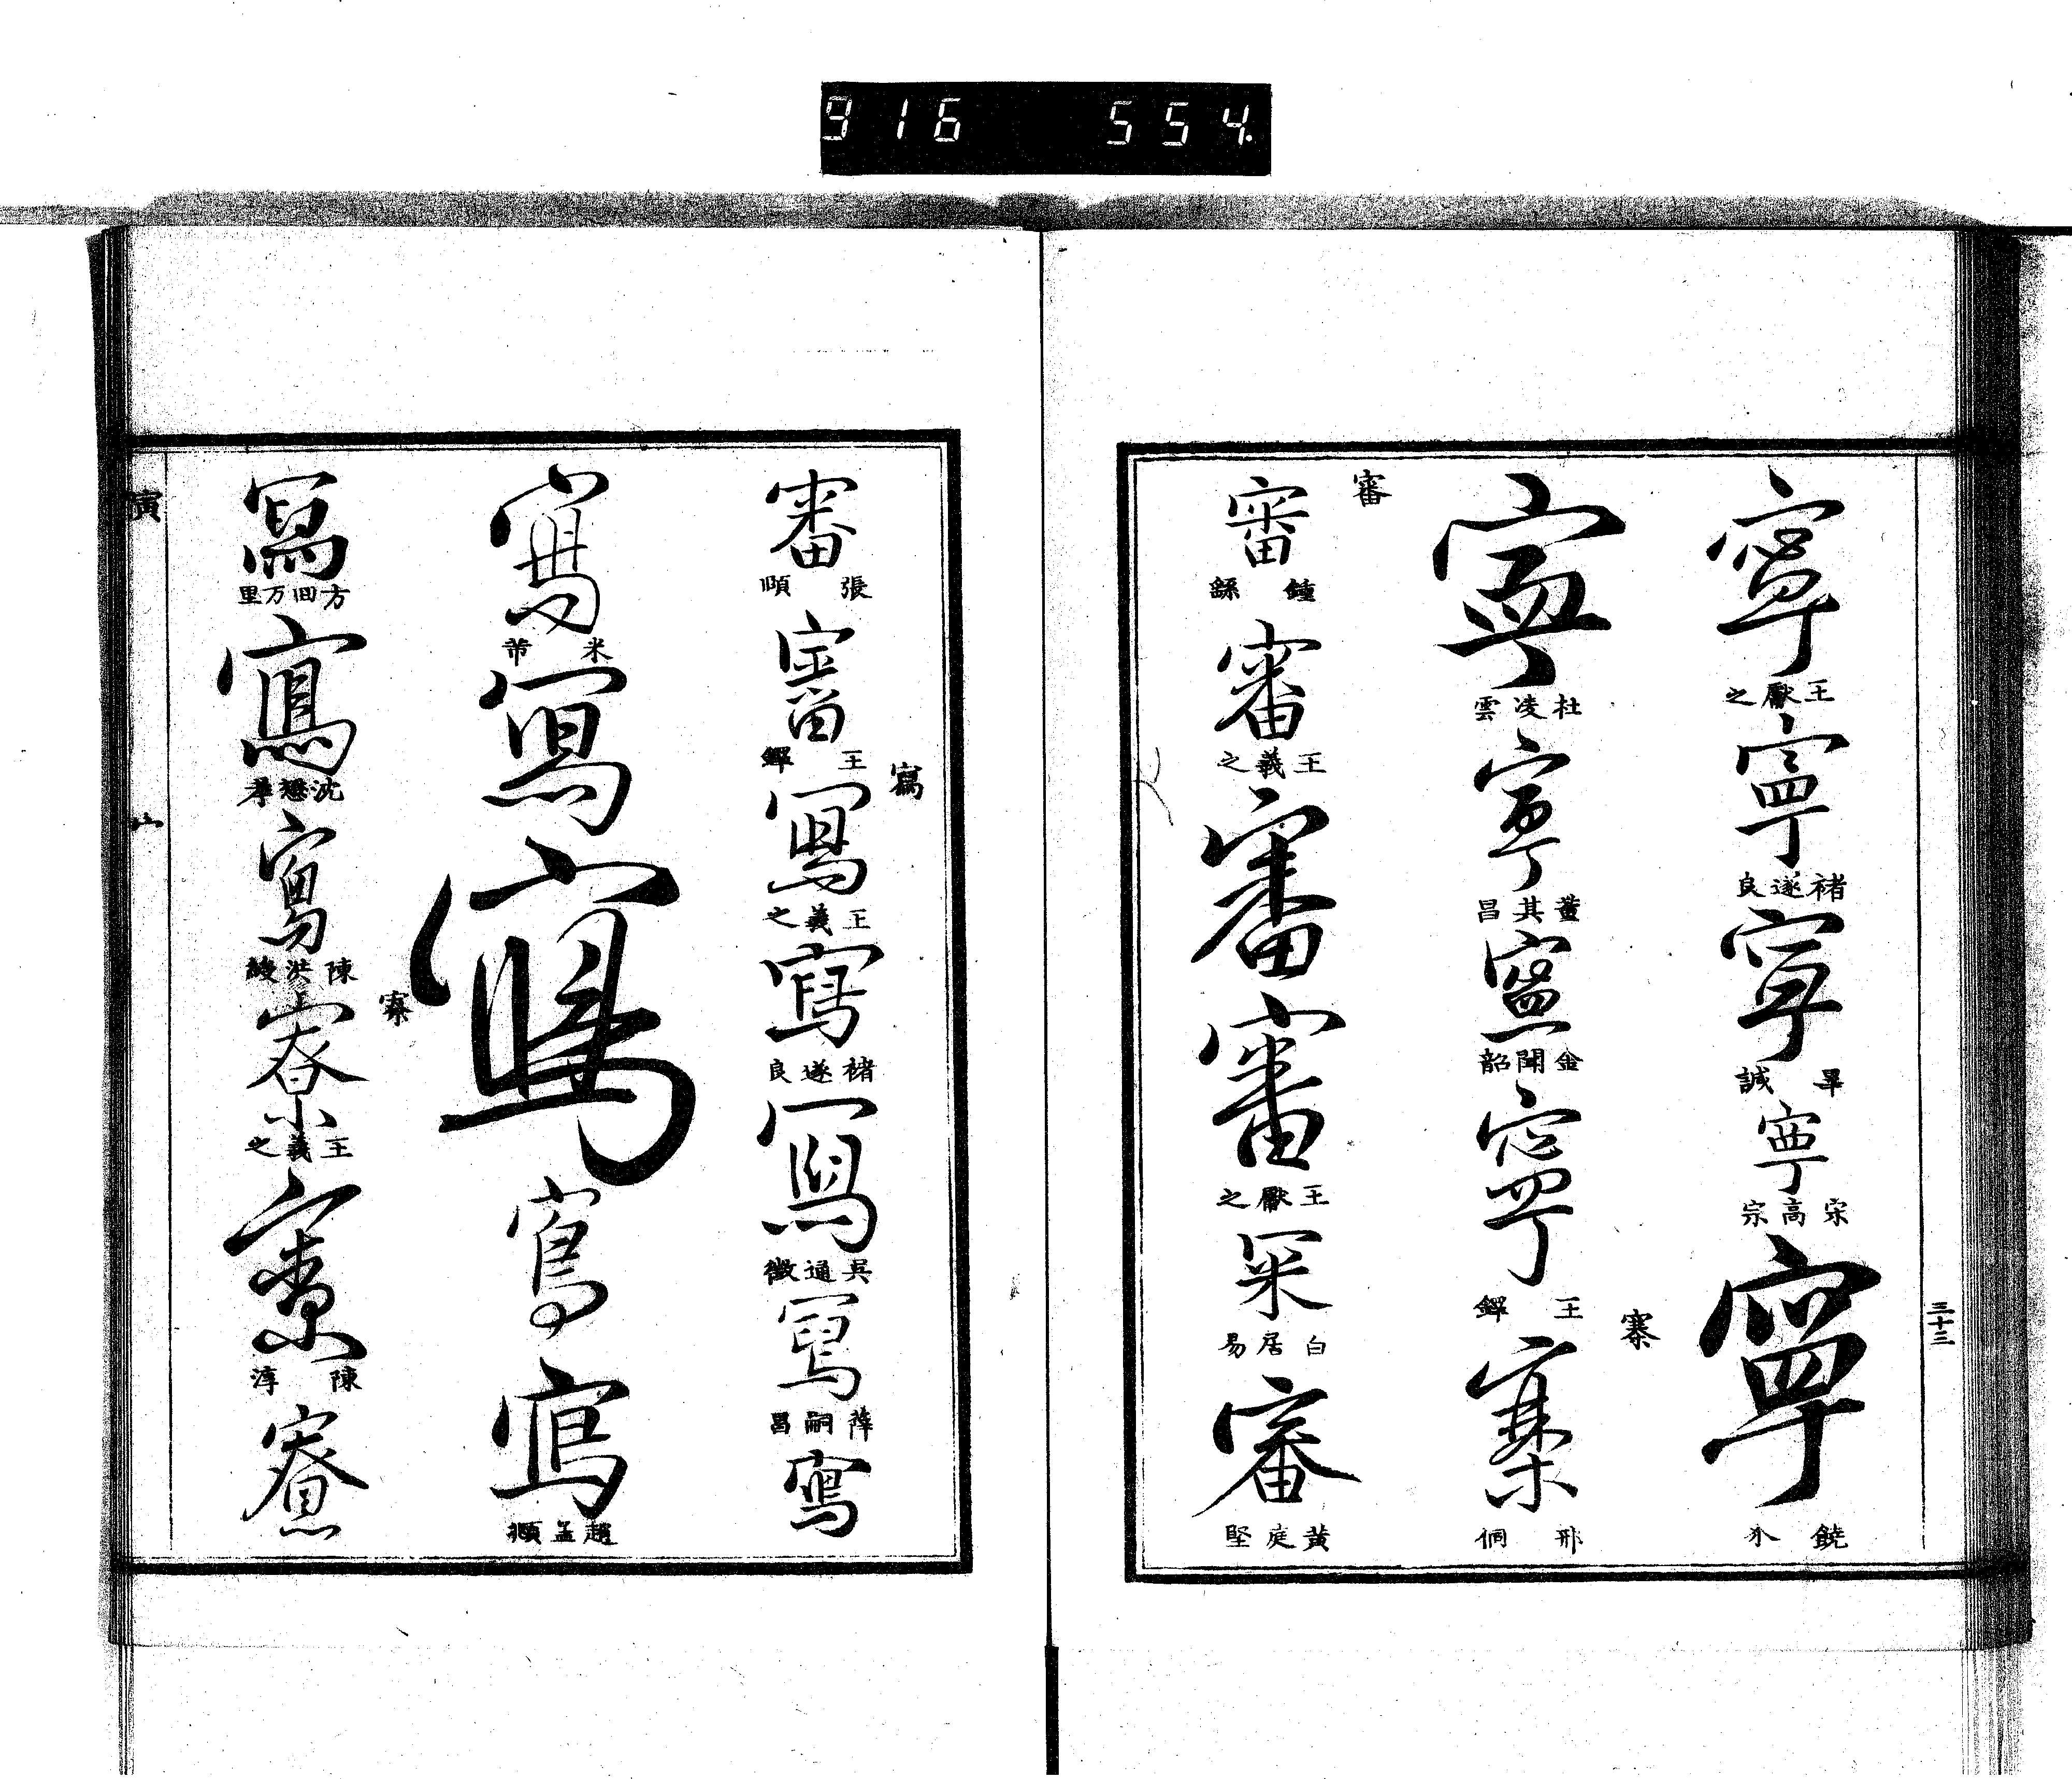 916 554.
三十三
寧
王獻之
寧
褚遂良
寧
畢誠
寧
宋高宗
寧
饒介
寧
杜凌雲
寧
董其昌
寧
金聞韶
寧
王鐸
寨
寨
邢侗
審
審
鍾繇
審
王羲之
審
審
王獻之
寀
白居易
審
黃庭堅
審
張頤
審
王鐸
寫
寫
王羲之
寫
褚遂良
寫
吳通微
寫
薛嗣昌
寫
寫
米芾
寫
寫
寫
寫
趙孟頫
寫
方回万里
寫
沈懋孝
寫
陳洪綬
寮
寮
王羲之
寮
陳淳
寮
寅
宀